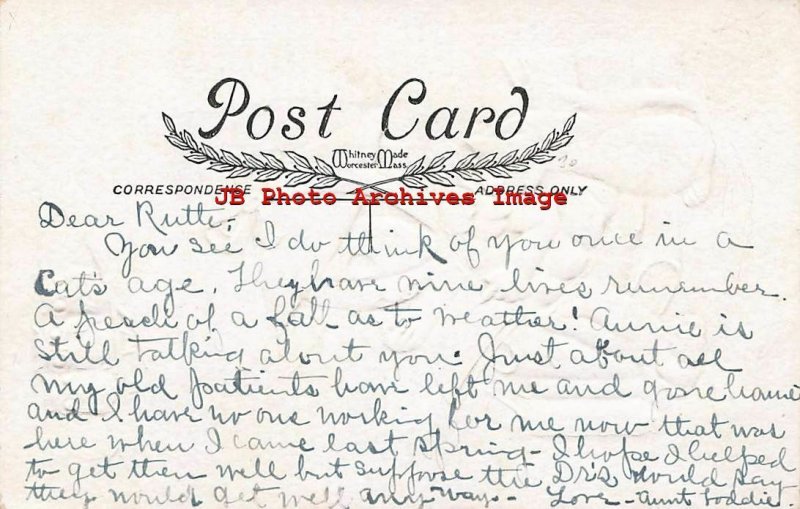 Post Card
Whitney Made
Worcester Mass
CORRESPONDENCE
ADDRESS ONLY
JB Photo Archives Image
30
Dear Ruth;
You see I do think of you once in a
Cat's age. They have nine lives remember.
A freach of a fall as to weather! Annie is
still talking about you. Just about all
my old patients have left me and gone home
and I have no one working for me now that was
here when I came last spring - I hope I helped
to get them well but suppose the Dr's would say
they would get well any way - Love - Aunt